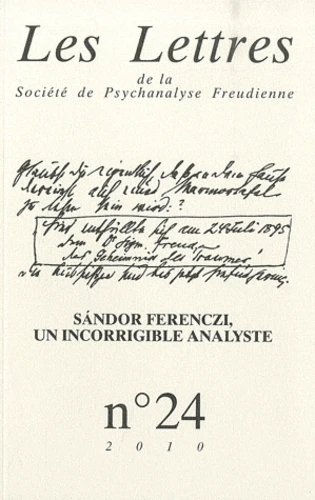 Les Lettres
de la
Société de Psychanalyse Freudienne
Glaubst Du eigentlich daß an dem Hause
dereinst auf einer Marmortafel
zu lesen sein wird:?
Hier enthüllte sich am 24 Juli 1895
dem Dr Sigm. Freud
das Geheimnis des Traumes
SÁNDOR FERENCZI,
UN INCORRIGIBLE ANALYSTE
n°24
2010